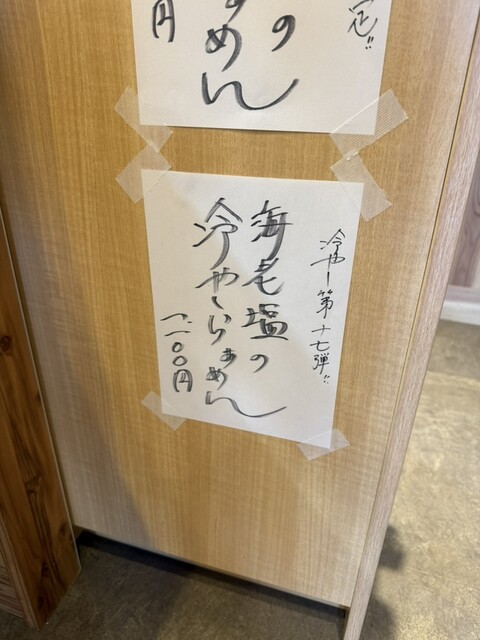 の
らぁめん
円
冷やし第十七弾!!
海老塩の
冷やしらぁめん
一、一〇〇円